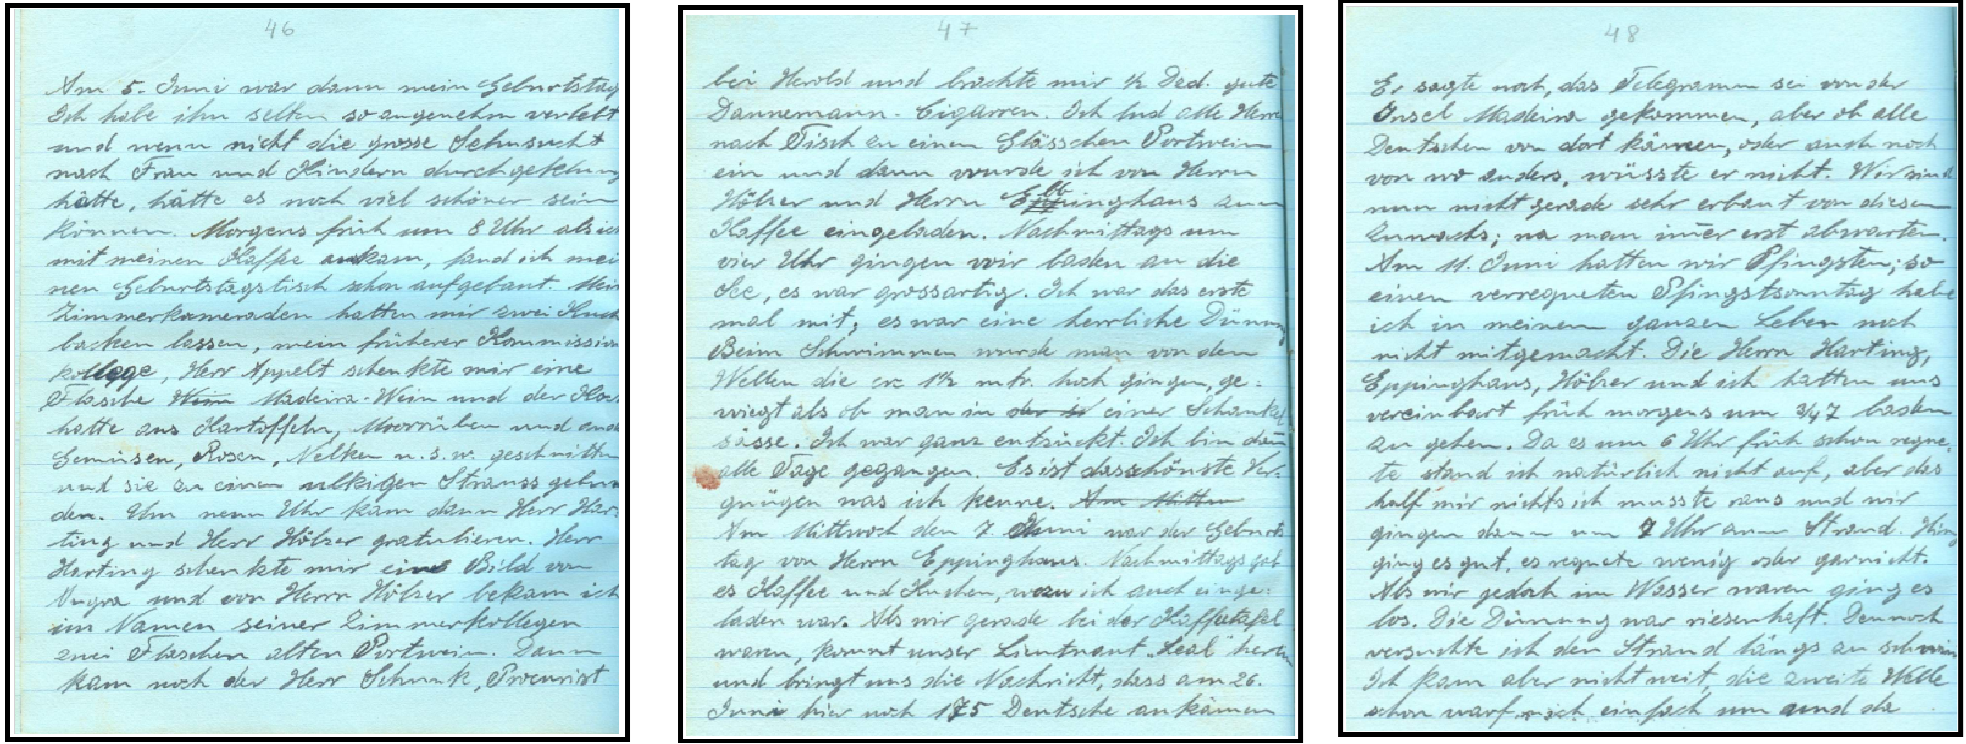 46
Am 5. Juni war dann mein Geburtstag
Ich habe ihn selten so angenehm verlebt
und wenn nicht die grosse Sehnsucht
nach Frau und Kindern
hätte, hätte es noch viel schöner sein
können. Morgens früh um 8 Uhr als ich
mit meinen Kaffee ankam, fand ich mei
nen Geburtstagstisch schon aufgebaut. Mein
Zimmerkameraden hatten mir zwei Kuch
backen lassen, mein früherer Kommission
kollege, Herr Appelt schenkte mir eine
Flasche Wein Madeira-Wein und der
hatte aus Kartoffeln, Moorrüben und and
Gemüsen, Rosen, Nelken u.s.w. geschnitten
und sie zu einen ulkigen Strauss gebun
den. Um neun Uhr kam dann Herr Har-
ting und Herr Hölzer gratulieren. Herr
Harting schenkte mir ein Bild von
und von Herrn Hölzer bekam ich
im Namen seiner Zimmerkollegen
zwei Flaschen alten Portwein. Dann
kam noch der Herr Schunk, Procurist
47
bei Herold und brachte mir ½ Dzd. gute
Dannemann-Cigarren. Ich lud alle Herrn
nach Tisch zu einen Glässchen Portwein
ein und dann wurde ich von Herrn
Hölzer und Herrn Ebbinghaus zum
Kaffee eingeladen. Nachmittags um
vier Uhr gingen wir baden an die
See, es war grossartig. Ich war das erste
mal mit; es war eine herrliche Dünung
Beim Schwimmen wurde man von den
Wellen die 1½ mtr. hoch gingen, ge-
wiegt als ob man in der in einer Schaukel
sässe. Ich war ganz entzückt. Ich bin dann
alle Tage gegangen. Es ist das schönste Ver-
gnügen was ich kenne. Am Mittw
Am Mittwoch den 7 Juni war der Geburts
tag von Herrn Eppinghaus. Nachmittags gab
es Kaffee und Kuchen, wozu ich auch einge-
laden war. Als wir gerade bei der Kaffeetafel
waren, kommt unser Lieutnant "Leal" herein
und bringt uns die Nachricht, dass am 26.
Juni hier noch 175 Deutsche ankämen
48
Er sagte noch, das Telegramm sei von der
Insel Madeira gekommen, aber ob alle
Deutschen von dort kämen, oder auch noch
von wo anders, wüsste er nicht. Wir sind
nun nicht gerade sehr erbaut von diesen
Zuwachs; na man immer erst abwarten.
Am 11. Juni hatten wir Pfingsten; so
einen verregneten Pfingstsonntag habe
ich in meinem ganzen Leben noch
nicht mitgemacht. Die Herrn Harting,
Eppinghaus, Hölzer und ich hatten uns
vereinbart früh morgens um ¾7 baden
zu gehen. Da es um 6 Uhr früh schon regne
te stand ich natürlich nicht auf, aber das
half mir nichts ich musste raus und wir
gingen dann um 7 Uhr zum Strand. Hin
ging es gut, es regnete wenig oder garnicht.
Als wir jedoch im Wasser waren ging es
los. Die Dünung war riesenhaft. Dennoch
versuchte ich den Strand längs zu schwim
Ich kam aber nicht weit, die zweite Welle
schon warf mich einfach um und da